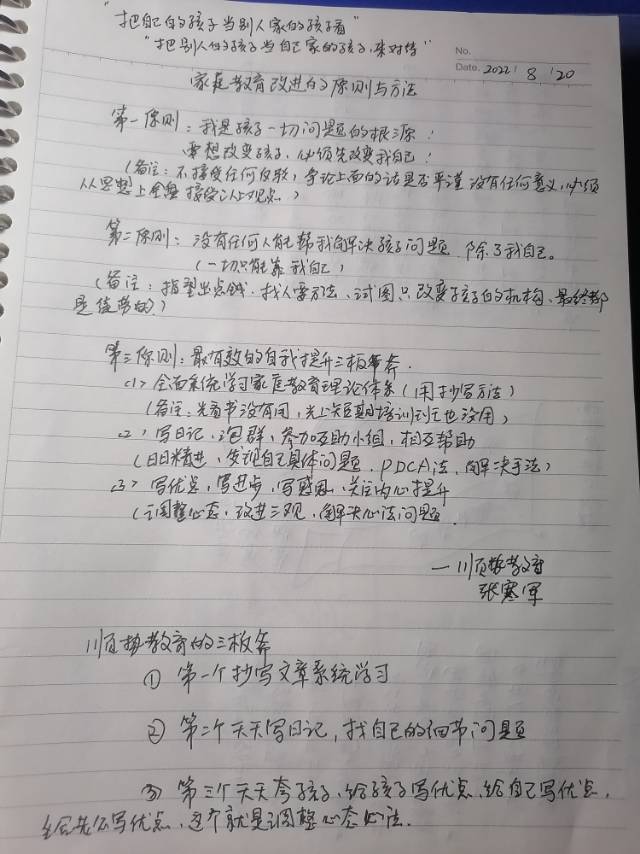 "把自己的孩子当别人家的孩子看"
"把别人家的孩子当自己家的孩子来对待"
No.
Date. 2022 / 8 / 20
家庭教育改进的原则与方法
第一原则：我是孩子一切问题的根源！
要想改变孩子，必须先改变我自己！
（备注：不接受任何反驳，争论上面的话是否严谨没有任何意义，必须
从思想上全盘接受以上观点。）
第二原则：没有任何人能帮我解决孩子问题，除了我自己。
（一切只能靠我自己）
（备注：指望出点钱、找人要方法、试图只改变孩子的机构、最终都
是徒劳的）
第三原则：最有效的自我提升三板斧。
(1) 全面系统学习家庭教育理论体系（用抄写方法）
（备注：光看书没有用，光上短期培训班也没用）
(2) 写日记、泡群、参加互助小组，相互帮助
（日日精进，发现自己具体问题，PDCA法，解决手法）
(3) 写优点，写进步，写感恩，关注内心提升
（调整心态，改进三观，解决心法问题。
—川页势教育
张寒军
川页势教育的三板斧
① 第一个抄写文章系统学习
② 第二个天天写日记，找自己的细节问题
③ 第三个天天夸孩子，给孩子写优点，给自己写优点，
给老公写优点，这个就是调整心态心法.